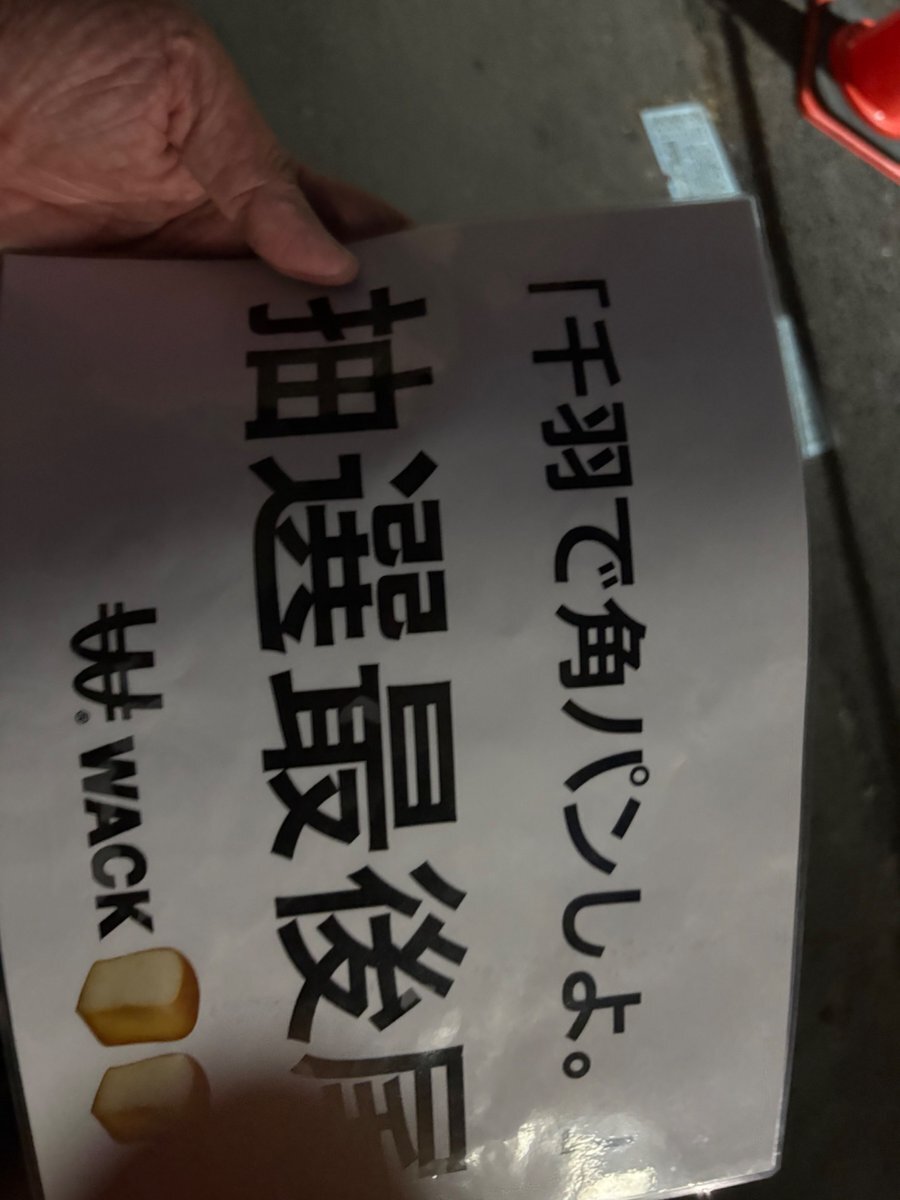 「千羽で角パンしよ。」
抽選最後尾
® WACK